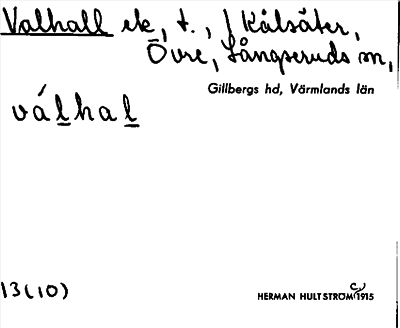 Valhall ek, t., / Kålsäter,
Övre, Långseruds sn,
Gillbergs hd, Värmlands län
válhal
13(10)
HERMAN HULTSTRÖM 1915